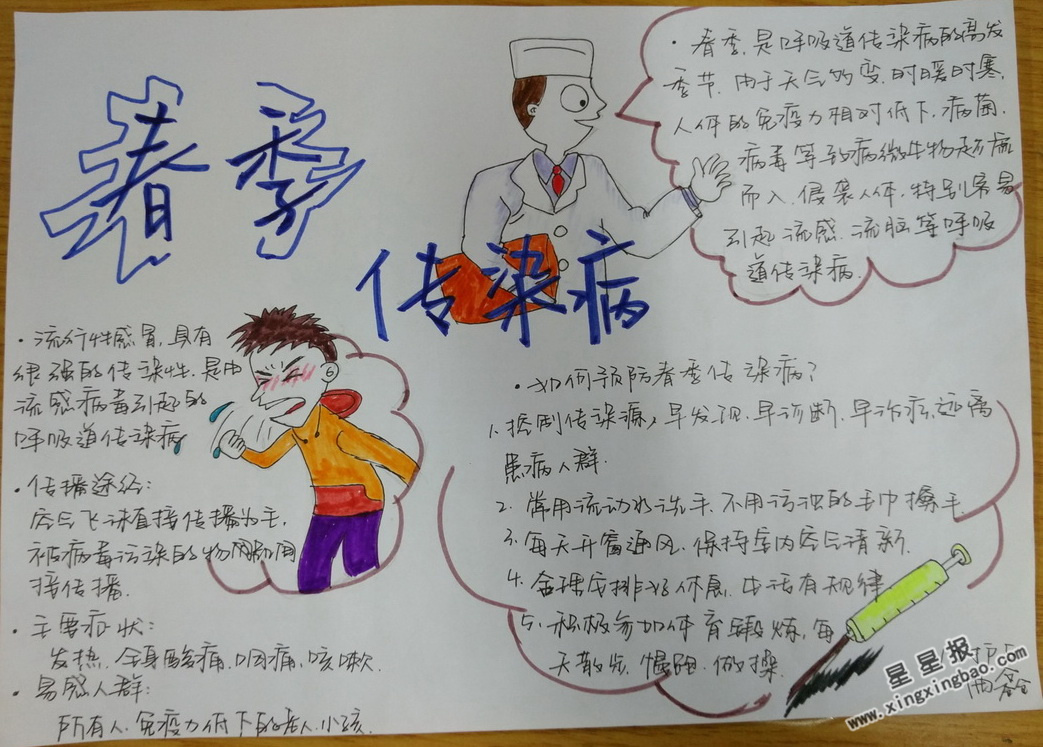 春季
传染病
·春季,是呼吸道传染病的高发
季节,由于天气多变,时暖时寒,
人体的免疫力相对低下,病菌,
病毒等致病微生物趁虚
而入,侵袭人体,特别容易
引起流感、流脑等呼吸
道传染病.
·流行性感冒,具有
很强的传染性,是由
流感病毒引起的
呼吸道传染病
·传播途径:
空气飞沫直接传播为主,
被病毒污染的物品间
接传播.
·主要症状:
发热、全身酸痛、咽痛、咳嗽.
·易感人群:
所有人,免疫力低下的老人、小孩.
·如何预防春季传染病?
1.控制传染源,早发现、早诊断、早治疗,远离
患病人群.
2.常用流动水洗手,不用污浊的毛巾擦手.
3.每天开窗通风,保持室内空气清新.
4.合理安排好休息,生活有规律
5.积极参加体育锻炼,每
天散步、慢跑、做操
星星报
www.xingxingbao.com